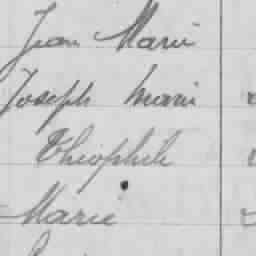 Jean Marie
Joseph Marie
Théophile
Marie